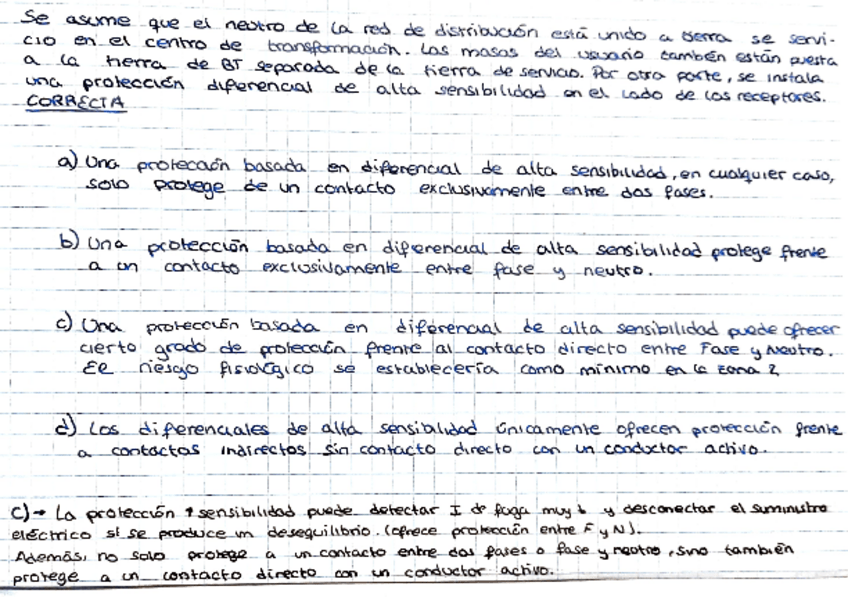 Se asume que el neutro de la red de distribución está unido a tierra se servi-
cio en el centro de transformación. Las masas del usuario también están puesta
a la tierra de BT separada de la tierra de servicio. Por otra parte, se instala
una protección diferencial de alta sensibilidad en el lado de los receptores.
CORRECTA
a) Una protección basada en diferencial de alta sensibilidad, en cualquier caso,
solo protege de un contacto exclusivamente entre dos fases.
b) Una protección basada en diferencial de alta sensibilidad protege frente
a un contacto exclusivamente entre fase y neutro.
c) Una protección basada en diferencial de alta sensibilidad puede ofrecer
cierto grado de protección frente al contacto directo entre Fase y Neutro.
El riesgo fisiológico se establecería como mínimo en la zona 2
d) Los diferenciales de alta sensibilidad únicamente ofrecen protección frente
a contactos indirectos sin contacto directo con un conductor activo.
c)→ La protección ↑ sensibilidad puede detectar I de fuga muy ↓ y desconectar el suministro
eléctrico si se produce un desequilibrio. (ofrece protección entre F y N).
Además, no solo protege a un contacto entre dos fases o fase y neutro, sino también
protege a un contacto directo con un conductor activo.